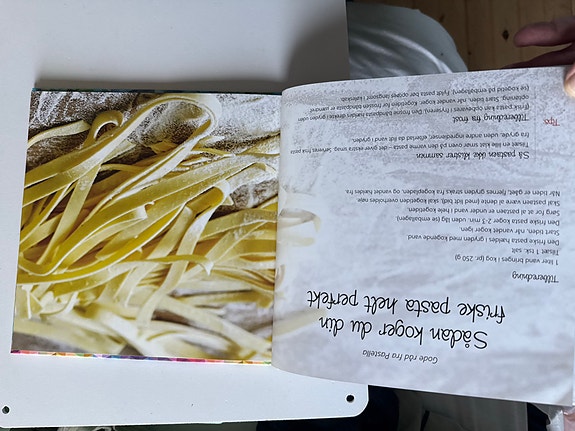 Gode råd fra Pastella
Sådan koger du din
friske pasta helt perfekt
Tilberedning
1 liter vand bringes i kog (pr. 250 g)
Tilsæt 1 tsk. salt
Den friske pasta hældes i gryden med kogende vand
Start uret, når vandet koger igen.
Den friske pasta koger 2-5 min. uden låg (se emballagen)
Sørg for at pastaen er under vand i hele kogetiden.
Skal pastaen være al dente (med lidt bid), skal kogetiden overholdes nøje
Når tiden er gået, fjernes gryden straks fra kogepladen, og vandet hældes fra.
Så pastaen ikke klistrer sammen
Tilsæt en lille klat smør oven på den varme pasta - det giver ekstra smag. Servér frisk pasta
fra gryde, vend den andre ingredienser, så pasta i gryden.
Tips
Tilberedning fra frost
(Frisk pasta kan opbevares i fryseren). Den frosne båndpasta hældes direkte i gryden uden
optøning. Start tiden, når vandet koger. Kogetiden for frossen båndpasta er uændret
(se kogetid på emballagen). Fyldt pasta bør optøs langsomt i køleskab.